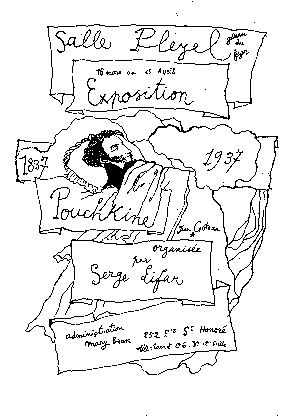 Salle Pleyel
du
mars au 15 Avril
Exposition
1837
1937
Pouchkine
Jean Cocteau
organisée
par
Serge Lifar
administration
252 Fg St Honoré